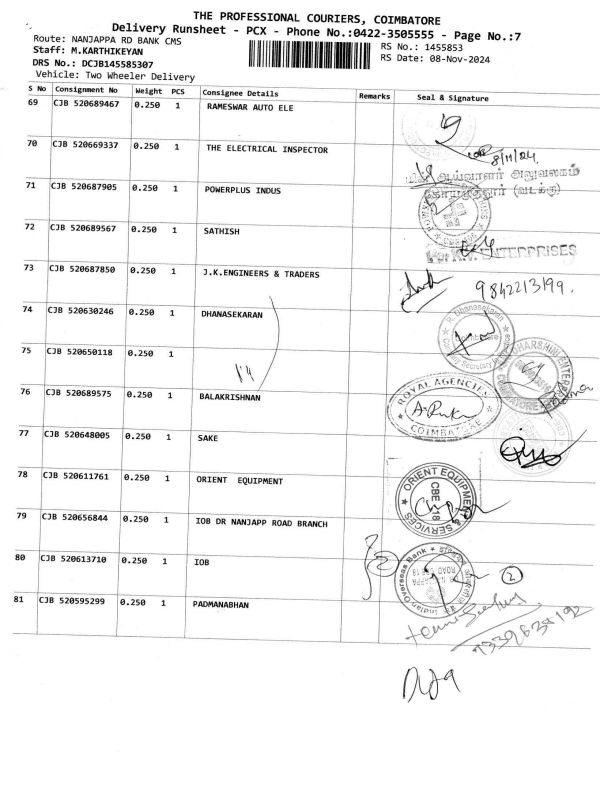 THE PROFESSIONAL COURIERS, COIMBATORE
Delivery Runsheet - PCX - Phone No.:0422-3505555 - Page No.:7
Route: NANJAPPA RD BANK CMS
RS No.: 1455853
Staff: M.KARTHIKEYAN
RS Date: 08-Nov-2024
DRS No.: DCJB145585307
Vehicle: Two Wheeler Delivery
S No Consignment No Weight PCS Consignee Details Remarks Seal & Signature
69 CJB 520689467 0.250 1 RAMESWAR AUTO ELE
70 CJB 520669337 0.250 1 THE ELECTRICAL INSPECTOR
8/11/24
ஆய்வாளர் அலுவலகம்
71 CJB 520687905 0.250 1 POWERPLUS INDUS
(வடக்கு)
72 CJB 520689567 0.250 1 SATHISH
ENTERPRISES
73 CJB 520687850 0.250 1 J.K.ENGINEERS & TRADERS
9842213199.
74 CJB 520630246 0.250 1 DHANASEKARAN
R. Dhanasekaran
75 CJB 520650118 0.250 1
76 CJB 520689575 0.250 1 BALAKRISHNAN
ROYAL AGENCIES
COIMBATORE
77 CJB 520648005 0.250 1 SAKE
78 CJB 520611761 0.250 1 ORIENT EQUIPMENT
ORIENT EQUIPMENT & SERVICES
CBE - 18
79 CJB 520656844 0.250 1 IOB DR NANJAPP ROAD BRANCH
80 CJB 520613710 0.250 1 IOB
Indian Overseas Bank
2
81 CJB 520595299 0.250 1 PADMANABHAN